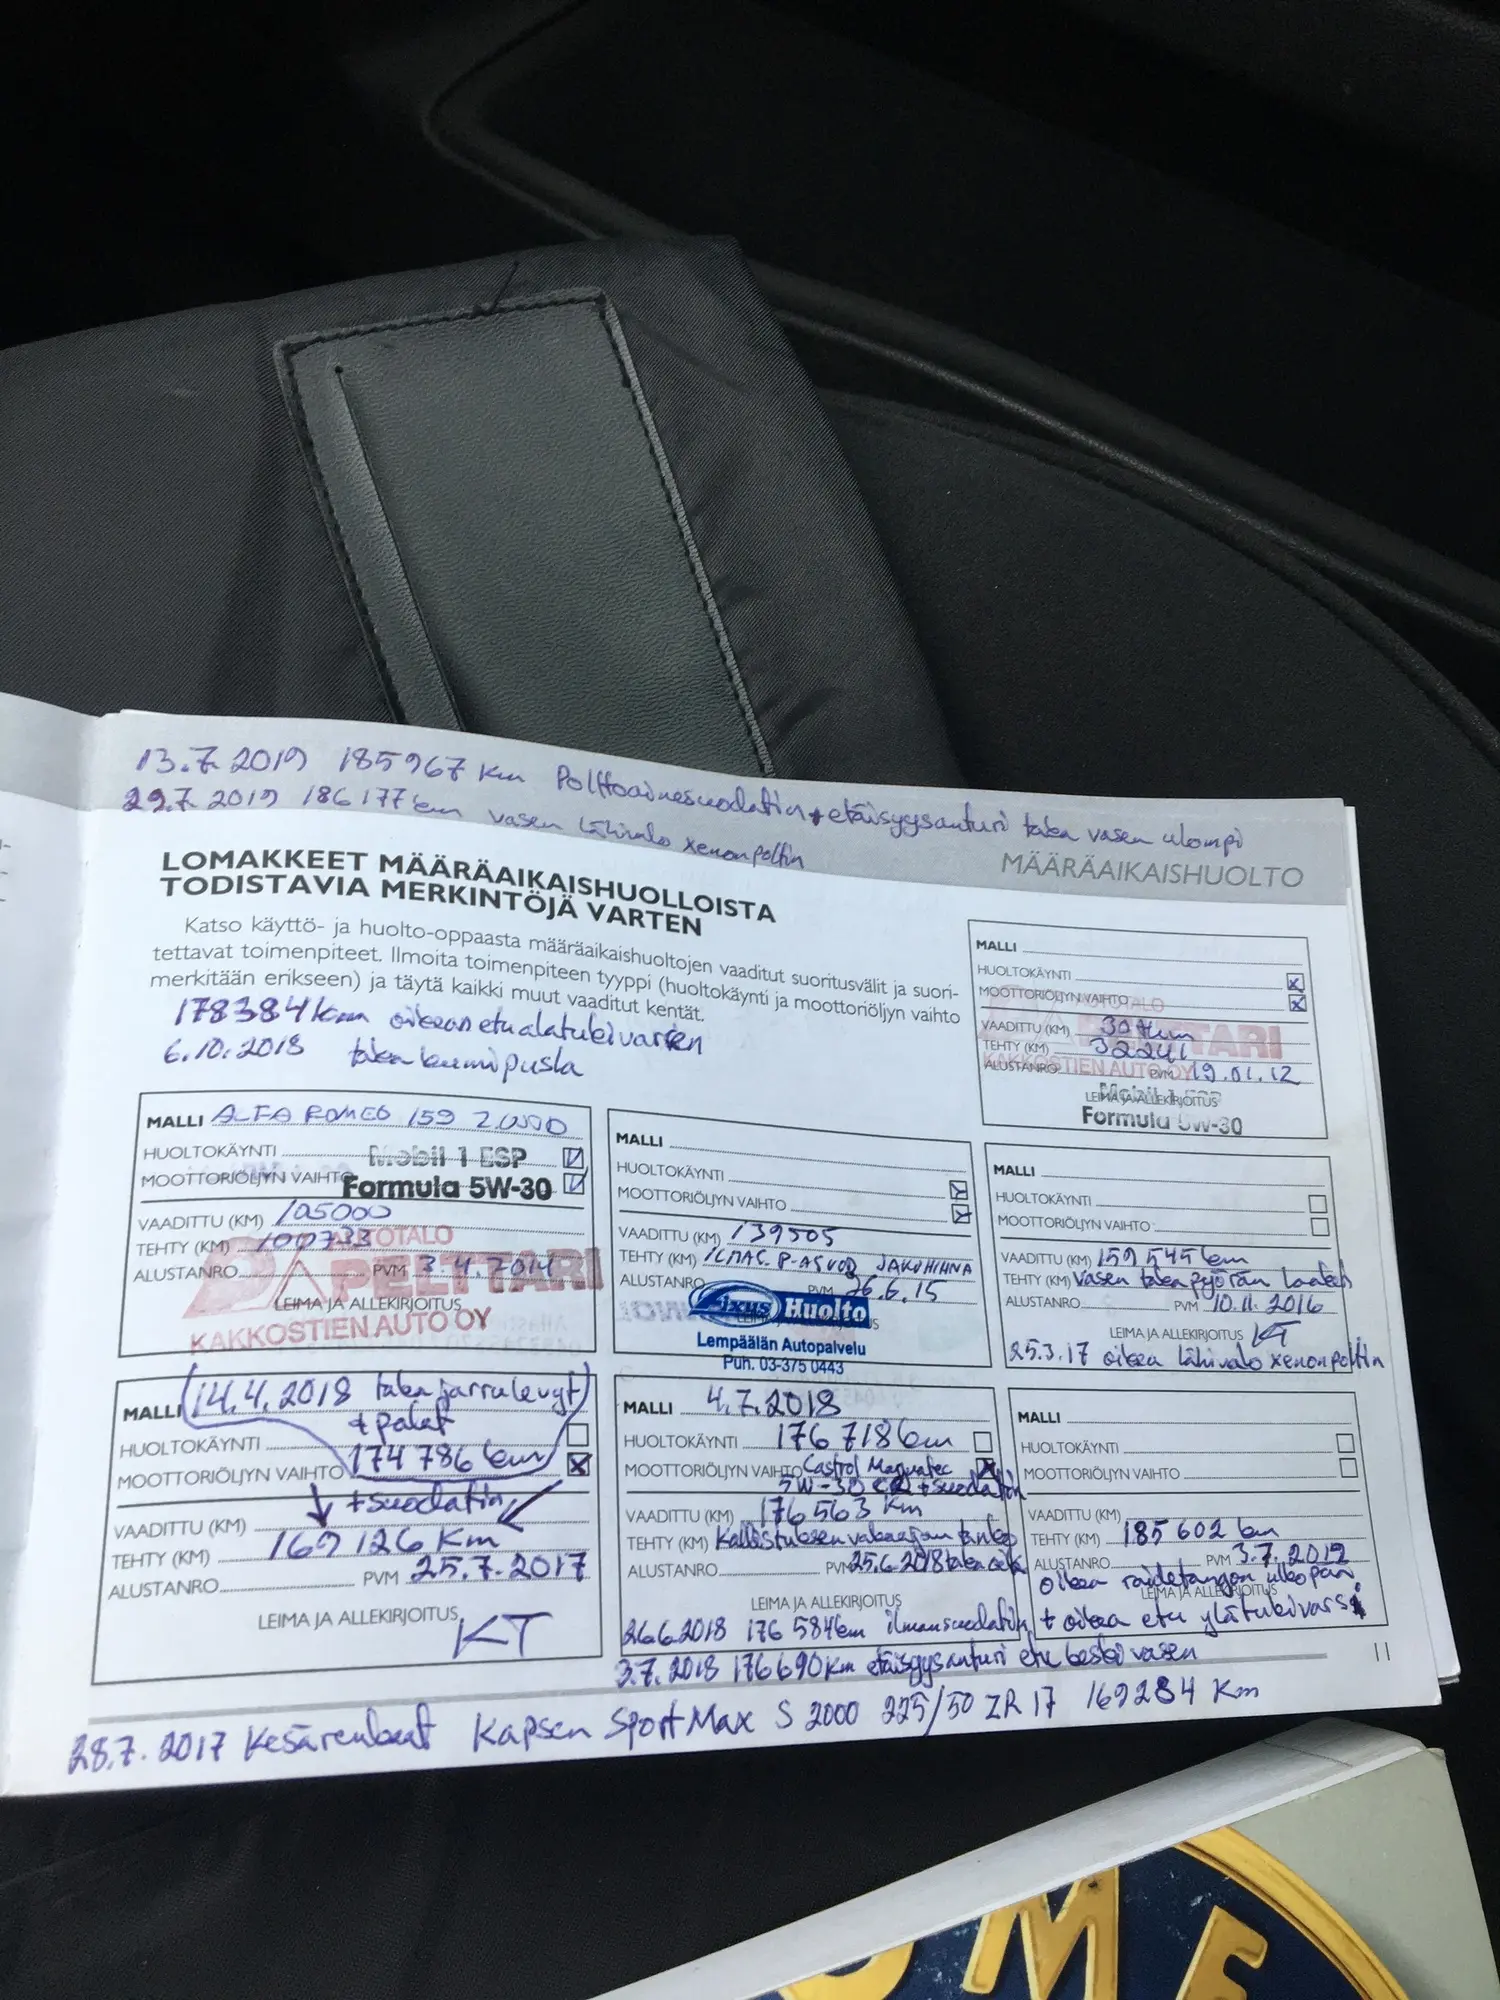 13.7.2019 185967 km Polttoainesuodatin + etäisyysanturi taka vasen ulompi
29.7.2019 186177 km vasen lähivalo xenonpolttin
MÄÄRÄAIKAISHUOLTO
LOMAKKEET MÄÄRÄAIKAISHUOLLOISTA
TODISTAVIA MERKINTÖJÄ VARTEN
Katso käyttö- ja huolto-oppaasta määräaikaishuoltojen vaaditut suoritusvälit ja suori-
tettavat toimenpiteet. Ilmoita toimenpiteen tyyppi (huoltokäynti ja moottoriöljyn vaihto
merkitään erikseen) ja täytä kaikki muut vaaditut kentät.
178384 km oikean etualatukivarren
6.10.2018 taka kumipusla
MALLI
HUOLTOKÄYNTI
MOOTTORIÖLJYN VAIHTO
VAADITTU (KM) 30 tkm
TEHTY (KM) 32241
ALUSTANRO PVM 19.01.12
KAKKOSTIEN AUTO OY
LEIMA JA ALLEKIRJOITUS
Mobil 1 ESP
Formula 5W-30
MALLI ALFA ROMEO 159
HUOLTOKÄYNTI Mobil 1 ESP
MOOTTORIÖLJYN VAIHTO Formula 5W-30
VAADITTU (KM) 105000
TEHTY (KM) 100733
AUTOTALO
ALUSTANRO PVM 3.4.2014
APELTTARI
LEIMA JA ALLEKIRJOITUS
KAKKOSTIEN AUTO OY
MALLI
HUOLTOKÄYNTI
MOOTTORIÖLJYN VAIHTO
VAADITTU (KM) 139505
TEHTY (KM) ILMAS. P-ASUOD JAKOHIHNA
ALUSTANRO PVM 26.6.15
Fixus Huolto
Lempäälän Autopalvelu
Puh. 03-375 0443
MALLI
HUOLTOKÄYNTI
MOOTTORIÖLJYN VAIHTO
VAADITTU (KM) 159 545 km
TEHTY (KM) vasen taka pyörän laakeri
ALUSTANRO PVM 10.11.2016
LEIMA JA ALLEKIRJOITUS KT
25.3.17 oikea lähivalo xenonpolttin
MALLI 14.4.2018 taka jarrulevyt
+ palat
HUOLTOKÄYNTI 174 786 km
MOOTTORIÖLJYN VAIHTO
+ suodatin
VAADITTU (KM)
TEHTY (KM) 169 126 Km
ALUSTANRO PVM 25.7.2017
LEIMA JA ALLEKIRJOITUS KT
MALLI 4.7.2018
HUOLTOKÄYNTI 176 718 km
MOOTTORIÖLJYN VAIHTO Castrol Magnatec
5W-30 + suodatin
VAADITTU (KM) 176 563 km
TEHTY (KM) Kallistuksen vakaajan tanko
ALUSTANRO PVM 25.6.2018 taka
LEIMA JA ALLEKIRJOITUS
26.6.2018 176 584 km ilmansuodatin
3.7.2018 176690 km etäisyysanturi etu keski vasen
MALLI
HUOLTOKÄYNTI
MOOTTORIÖLJYN VAIHTO
VAADITTU (KM)
TEHTY (KM) 185 602 km
ALUSTANRO PVM 3.7.2019
oikea raidetangon ulkopää
LEIMA JA ALLEKIRJOITUS
+ oikea etu ylätukivarsi
11
28.7.2017 Kesärenkaat Kapsen SportMax S 2000 225/50 ZR 17 169284 Km
OME